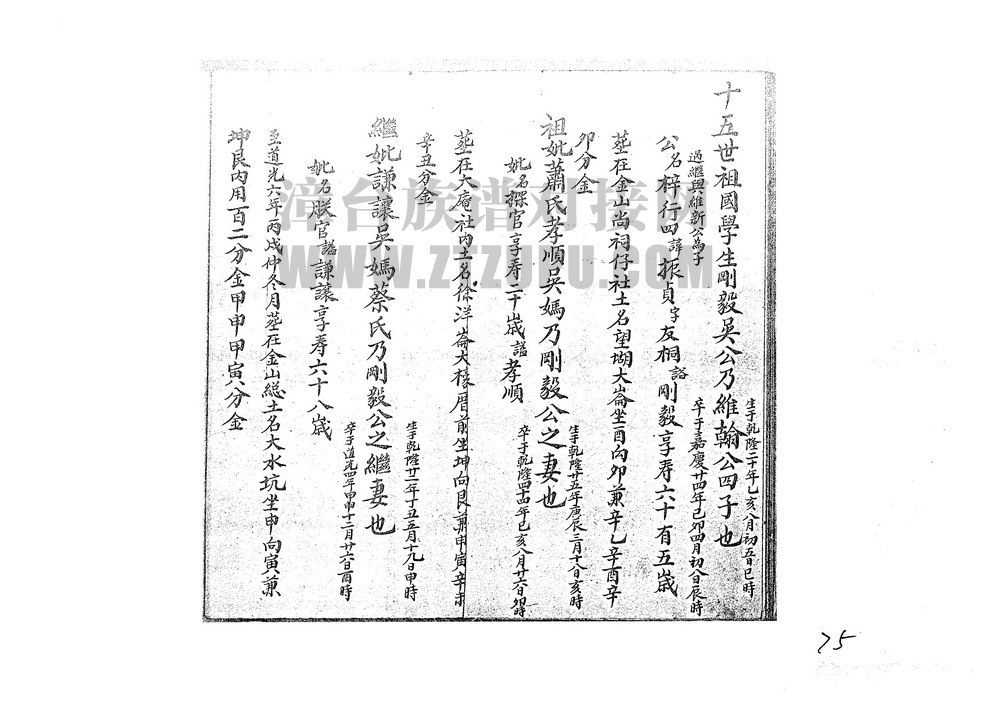 十五世祖國學生剛毅吳公乃維翰公四子也
生于乾隆二十年乙亥八月初五日巳時
卒于嘉慶廿四年己卯四月初八日辰時
過繼與維新公為子
公名梓行四諱振貞字友桐謚剛毅享寿六十有五歲
塟在金山尚祠仔社土名望塘大崙坐酉向卯兼辛乙辛酉辛
卯分金
祖妣蕭氏孝順吳媽乃剛毅公之妻也
生于乾隆廿五年庚辰三月十八日亥時
卒于乾隆四十四年己亥八月廿六日卯時
妣名探官享寿二十歲謚孝順
塟在大庵社内土名徐洋崙大椽厝前坐坤向艮兼申寅辛未
辛丑分金
繼妣謙讓吳媽蔡氏乃剛毅公之繼妻也
生于乾隆廿二年丁丑五月十九日申時
卒于道光四年甲申十二月廿六日酉時
妣名朕官謚謙讓享寿六十八歲
至道光六年丙戌仲冬月塟在金山總土名大水坑坐申向寅兼
坤艮内用百二分金甲申甲寅分金
漳台族谱对接网
WWW.ZTZUPU.COM
75